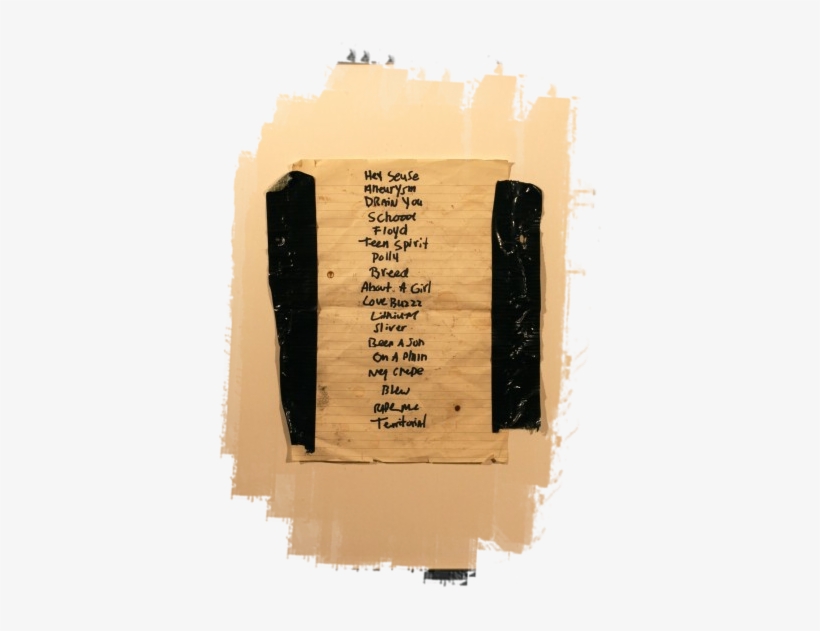 Hey Seuse
Aneurysm
DRAIN You
School
Floyd
Teen Spirit
Polly
Breed
About A Girl
Love Buzz
Lithium
Sliver
Been A Son
On A Plain
Neg Crepe
Blew
Rape me
Territorial